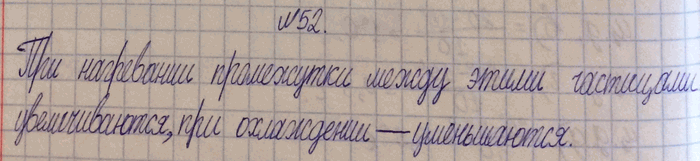 №52.
При нагревании промежутки между этими частицами
увеличиваются, при охлаждении — уменьшаются.